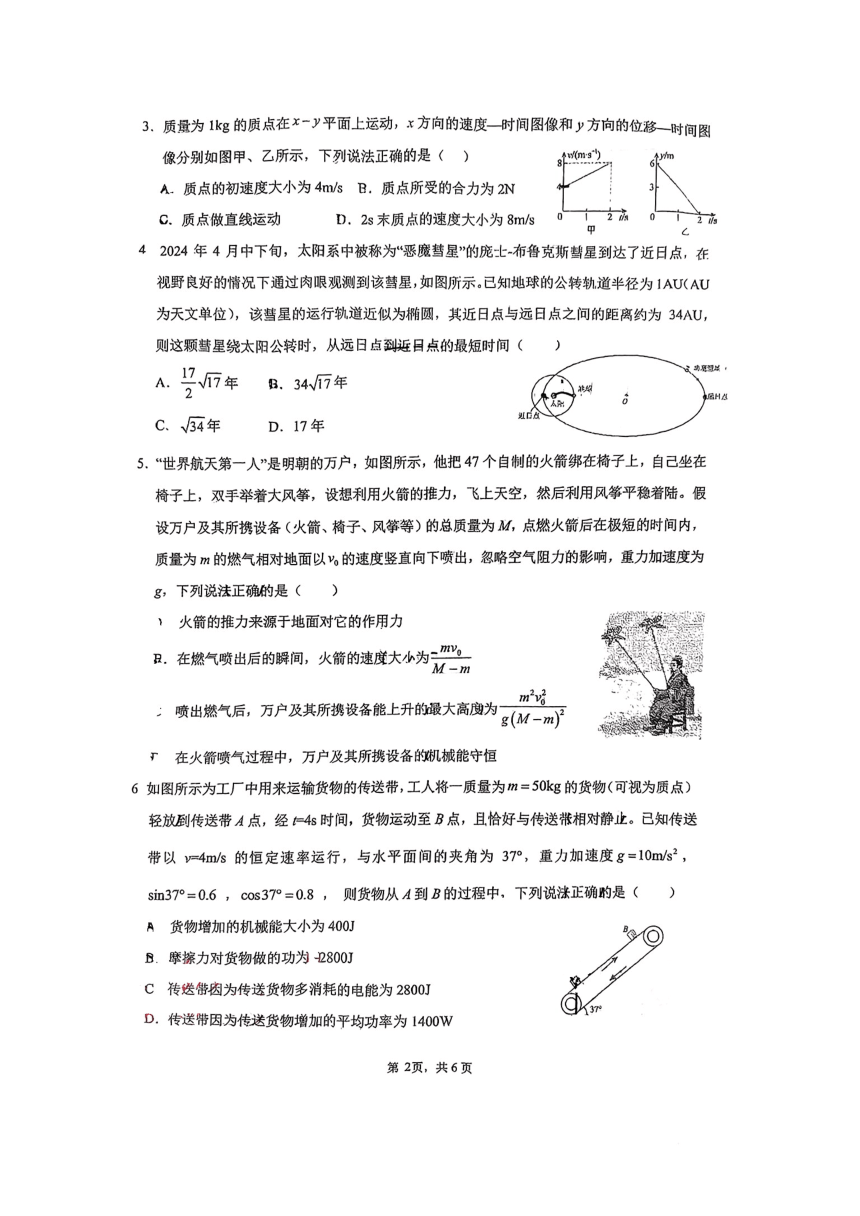 3．质量为 1kg 的质点在 x－y 平面上运动，x 方向的速度—时间图像和 y 方向的位移—时间图
像分别如图甲、乙所示，下列说法正确的是（ ）
A．质点的初速度大小为 4m/s B．质点所受的合力为 2N
C．质点做直线运动 D．2s 末质点的速度大小为 8m/s
v/(m·s⁻¹)
8
4
0 1 2 t/s
甲
y/m
6
3
0 1 2 t/s
乙
4 2024 年 4 月中下旬，太阳系中被称为“恶魔彗星”的庞士-布鲁克斯彗星到达了近日点，在
视野良好的情况下通过肉眼观测到该彗星，如图所示。已知地球的公转轨道半径为 1AU（AU
为天文单位），该彗星的运行轨道近似为椭圆，其近日点与远日点之间的距离约为 34AU，
则这颗彗星绕太阳公转时，从远日点到近日点的最短时间（ ）
A．17/2 √17 年 B．34√17 年
C、√34 年 D．17 年
地球
太阳
近日点
O
远日点
5．“世界航天第一人”是明朝的万户，如图所示，他把 47 个自制的火箭绑在椅子上，自己坐在
椅子上，双手举着大风筝，设想利用火箭的推力，飞上天空，然后利用风筝平稳着陆。假
设万户及其所携设备（火箭、椅子、风筝等）的总质量为 M，点燃火箭后在极短的时间内，
质量为 m 的燃气相对地面以 v₀ 的速度竖直向下喷出，忽略空气阻力的影响，重力加速度为
g，下列说法正确的是（ ）
火箭的推力来源于地面对它的作用力
B．在燃气喷出后的瞬间，火箭的速度大小为 mv₀/(M－m)
喷出燃气后，万户及其所携设备能上升的最大高度为 m²v₀²/g(M－m)²
在火箭喷气过程中，万户及其所携设备的机械能守恒
6 如图所示为工厂中用来运输货物的传送带，工人将一质量为 m＝50kg 的货物（可视为质点）
轻放到传送带 A 点，经 t=4s 时间，货物运动至 B 点，且恰好与传送带相对静止。已知传送
带以 v=4m/s 的恒定速率运行，与水平面间的夹角为 37°，重力加速度 g＝10m/s²，
sin37°＝0.6 ，cos37°＝0.8 ，则货物从 A 到 B 的过程中，下列说法正确的是（ ）
A 货物增加的机械能大小为 400J
B．摩擦力对货物做的功为 -2800J
C 传送带因为传送货物多消耗的电能为 2800J
D．传送带因为传送货物增加的平均功率为 1400W
B
37°
第 2页，共 6 页